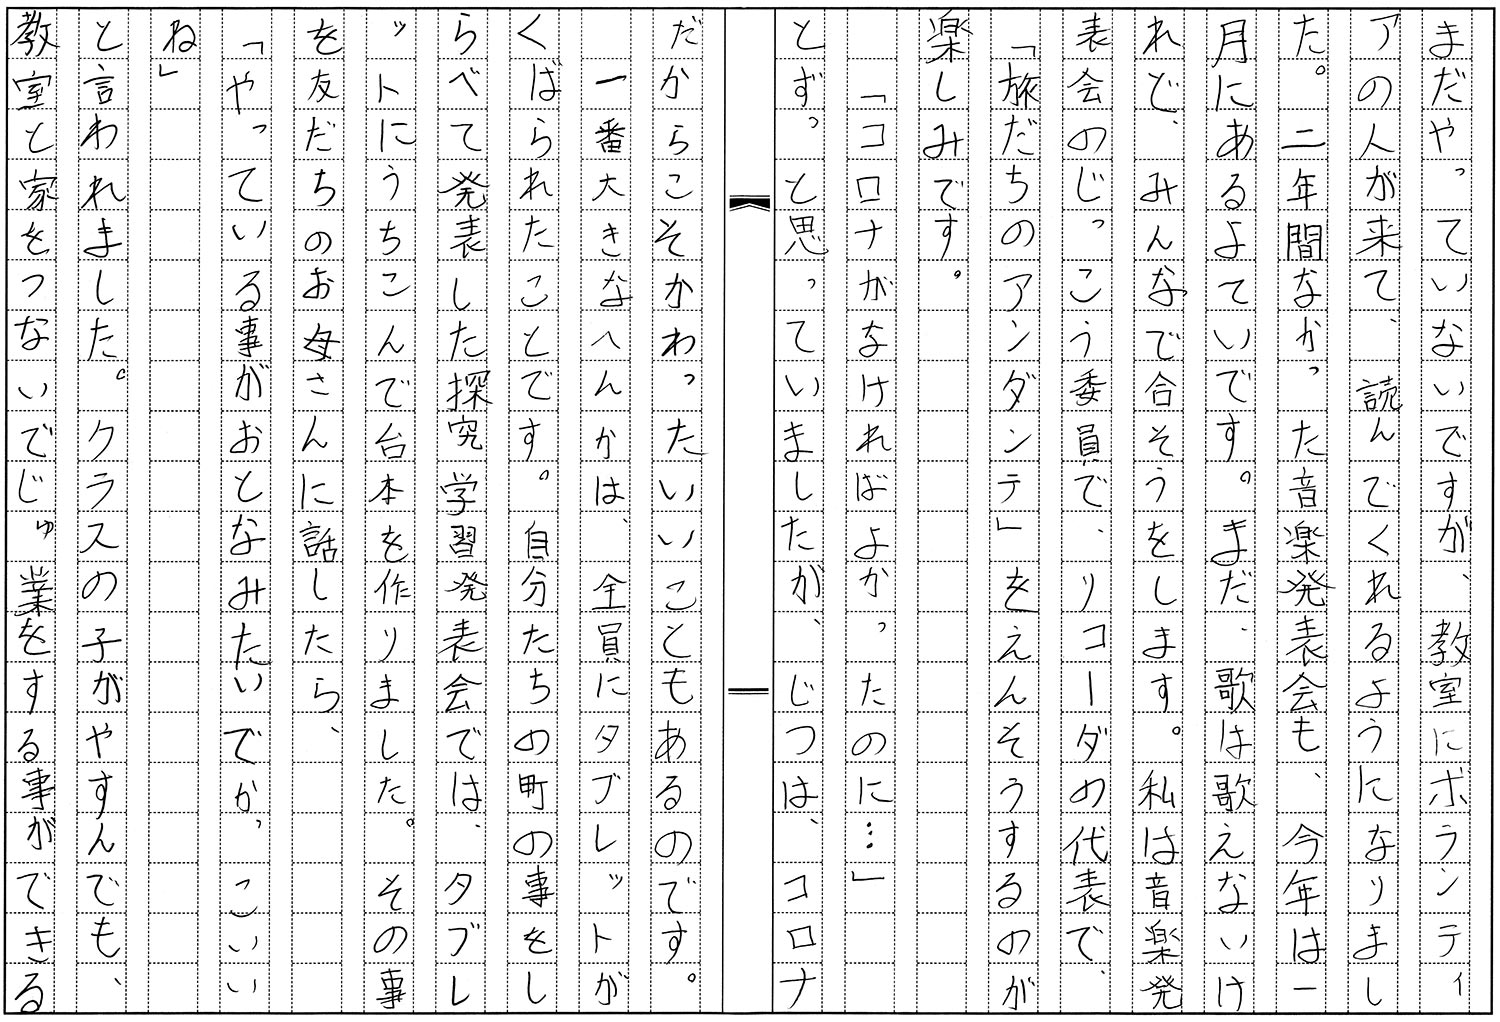 まだやっていないですが、教室にボランティ
アの人が来て、読んでくれるようになりまし
た。二年間なかった音楽発表会も、今年は一
月にあるよていです。まだ、歌は歌えないけ
れど、みんなで合そうをします。私は音楽発
表会のじっこう委員で、リコーダの代表で、
「旅だちのアンダンテ」をえんそうするのが
楽しみです。
「コロナがなければよかったのに…」
とずっと思っていましたが、じつは、コロナ
だからこそかわったいいこともあるのです。
一番大きなへんかは、全員にタブレットが
くばられたことです。自分たちの町の事をし
らべて発表した探究学習発表会では、タブレ
ットにうちこんで台本を作りました。その事
を友だちのお母さんに話したら、
「やっている事がおとなみたいでかっこいい
ね」
と言われました。クラスの子がやすんでも、
教室と家をつないでじゅ業をする事ができる